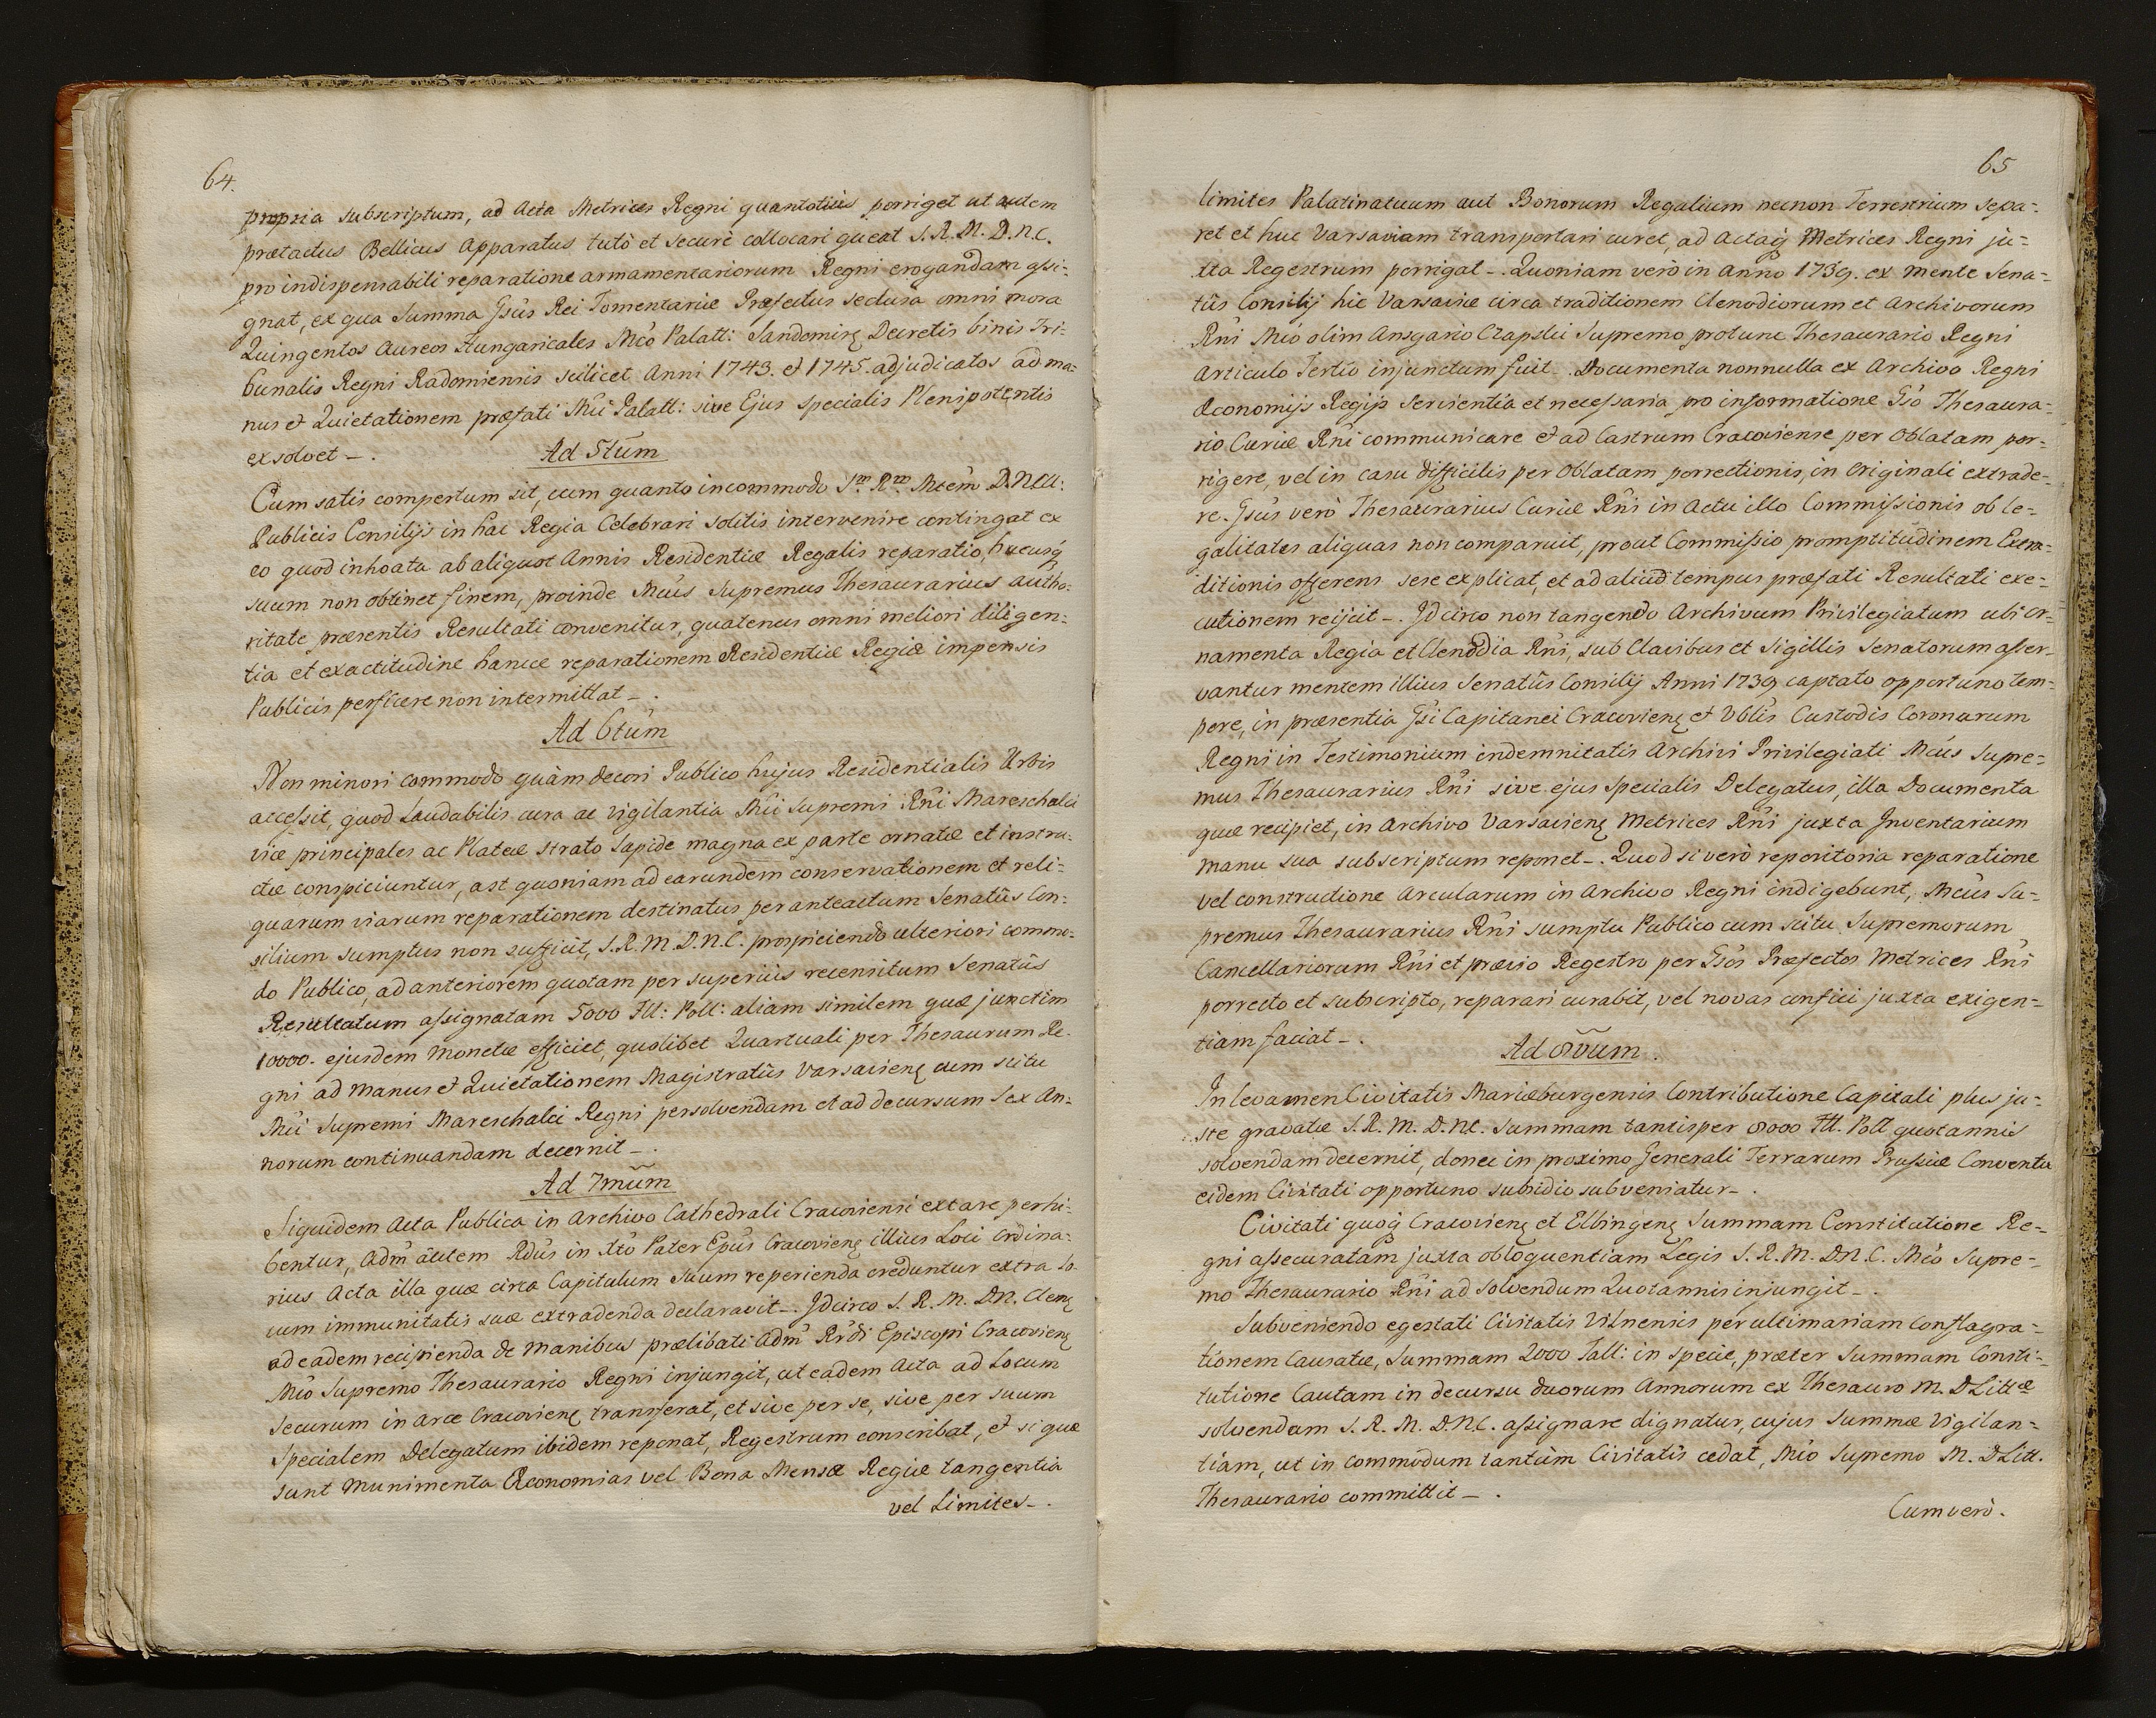 64.
propria subscriptum, ad Acta Metrices Regni quantotius porriget ut autem
prætactus Bellicus Apparatus tutò et securè collocari queat S. R. M. D. N. C.
pro indispensabili reparatione armamentariorum Regni erogandam assi=
gnat, ex qua Summa Gsus Rei Tomentariæ Præfectus seclusa omni mora
Quingentos Aureos Hungaricales Mco Palatt: Sandomirę Decretis binis Tri=
bunalis Regni Radomiensis scilicet Anni 1743. et 1745. adjudicatos ad ma=
nus et Quietationem præfati Mci Palatt: sive Ejus specialis Plenipotentis
exsolvet _ .
Ad 5tum
Cum satis compertum sit, cum quanto incommodo S.m R.m Mtem D. N. Ctt:
Publicis Consilijs in hac Regia Celebrari solitis intervenire contingat ex
eo quod inhoata ab aliquot Annis Residentiæ Regalis reparatio, hucusq
suum non obtinet finem, proinde Mcus Supremus Thesaurarius autho=
ritate præsentis Resultati convenitur, quatenus omni meliori diligen=
tia et exactitudine hancce reparationem Residentiæ Regiæ impensis
Publicis perficere non intermittat _ .
Ad 6tum
Non minori commodo quàm decori Publico hujus Residentialis Urbis
accessit, quod Laudabilis cura ac vigilantia Mci Supremi Rni Mareschalci
viæ principales ac Plateæ strato Lapide magna ex parte ornatæ et instru=
ctæ conspiciuntur, ast quoniam ad earundem conservationem et reli=
quarum viarum reparationem destinatus per anteactum Senatûs Con=
silium sumptus non sufficit, S. R. M. D. N. C. prospiciendo ulteriori commo=
do Publico, ad anteriorem quotam per superiùs recensitum Senatûs
Resultatum assignatam 5000 Fll: Poll: aliam similem quæ junctim
10000. ejusdem monetæ efficiet, quolibet Quartuali per Thesaurum Re=
gni ad manus et Quietationem Magistratûs Varsavienę cum scitu
Mci Supremi Mareschalci Regni persolvendam et ad decursum Sex An=
norum continuandam decernit _ .
Ad 7mum
Siquidem Acta Publica in Archivo Cathedrali Cracoviensi extare perhi=
bentur, Adm autem Rdus in Xto Pater Epus Cracovienę illius Loci Ordina=
rius Acta illa quæ circa Capitulum Suum reperienda creduntur extra Lo=
cum immunitatis suæ extradenda declaravit _. Idcirco S. R. M. D.N. Clemę
ad eadem recipienda de manibus prælibati Adm Rdi Episcopi Cracovienę
Mco Supremo Thesaurario Regni injungit, ut eadem Acta ad Locum
Securum in Arce Cracovienę transferat, et sive per se, sive per suum
Specialem Delegatum ibidem reponat, Regestrum conscribat, et si quæ
sunt Munimenta Œconomias vel Bona Mensæ Regiæ tangentia
vel Limites _ .
65
limites Palatinatuum aut Bonorum Regalium necnon Terrestrium sepa=
ret et huc Varsaviam transportari curet, ad Actaq Metrices Regni ju=
xta Regestrum porrigat _. Quoniam verò in Anno 1739. ex mente Sena=
tûs Consilij hic Varsaviæ circa traditionem Clenodiorum et Archivorum
Rni Mco olim Ansgario Czapski Supremo protunc Thesaurario Regni
Articulo Tertio injunctum fuit _. Documenta nonnulla ex Archivo Regni
Œconomijs Regijs servientia et necessaria pro informatione Gso Thesaura=
rio Curiæ Rni communicare et ad Castrum Cracoviense per Oblatam por=
rigere, vel in casu difficilis per Oblatam porrectionis, in Originali extrade=
re. Gsus verò Thesaurarius Curiæ Rni in Actu illo Commissionis ob le=
galitates aliquas non comparuit, prout Commissio promptitudinem Exera=
ditionis offerens sese explicat, et ad aliud tempus præfati Resultati exe=
cutionem reijcit _. Idcirco non tangendo Archivum Privilegiatum ubi or=
namenta Regia et Clenodia Rni, sub Clavibus et Sigillis Senatorum asser=
vantur mentem illius Senatûs Consilij Anni 1739 captato opportuno tem=
pore, in præsentia Gsi Capitanei Cracovienę et Nblis Custodis Coronarum
Regni in Testimonium indemnitatis Archivi Privilegiati Mcus Supre=
mus Thesaurarius Rni sive ejus specialis Delegatus, illa Documenta
quæ recipiet, in Archivo Varsavienę Metrices Rni juxta Inventarium
manu sua subscriptum reponet _. Quod si verò reporitoria reparatione
vel constructione Arcularum in Archivo Regni indigebunt, Mcus Su=
premus Thesaurarius Rni sumptu Publico cum scitu Supremorum
Cancellariorum Rni et prævio Regestro per Gsos Præfectos Metrices Rni
porrecto et subscripto, reparari curabit, vel novas confici juxta exigen=
tiam faciat _ .
Ad 8vum.
In levamen Civitatis Mariæburgensis Contributione Capitali plus ju=
ste gravatæ S. R. M. D. N.C. Summam tantisper 8000 Fll. Poll quotannis
solvendam decernit, donec in proximo Generali Terrarum Prussiæ Conventu
eidem Civitati opportuno subsidio subveniatur _ .
Civitati quoq Cracovienę et Elbingenę Summam Constitutione Re=
gni assecuratam juxta obloquentiam Legis S. R. M. D.N. C. Mco Supre=
mo Thesaurario Rni ad solvendum Quotannis injungit _ .
Subveniendo egestati Civitatis Vilnensis per ultimariam Conflagra=
tionem Causatæ, Summam 2000 Tall: in Specie, præter Summam Consti=
tutione Cautam in decursu duorum Annorum ex Thesauro M. D Littæ
solvendam S. R. M. D.N.C. assignare dignatur, cujus Summæ Vigilan=
tiam, ut in commodum tantùm Civitatis cedat, Mco Supremo M. D Litt.
Thesaurario committit _ .
Cum verò.